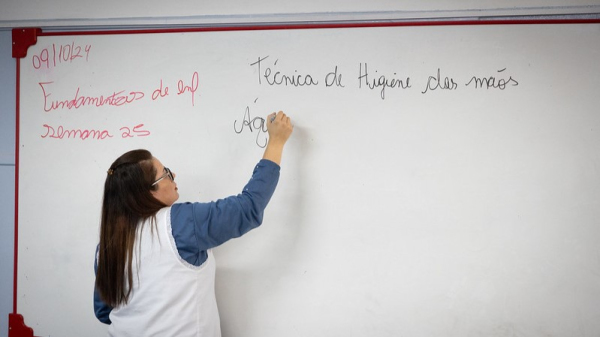 09/10/24
Fundamentos de enf
Semana 25
Técnica de Higiene das mãos
Ág